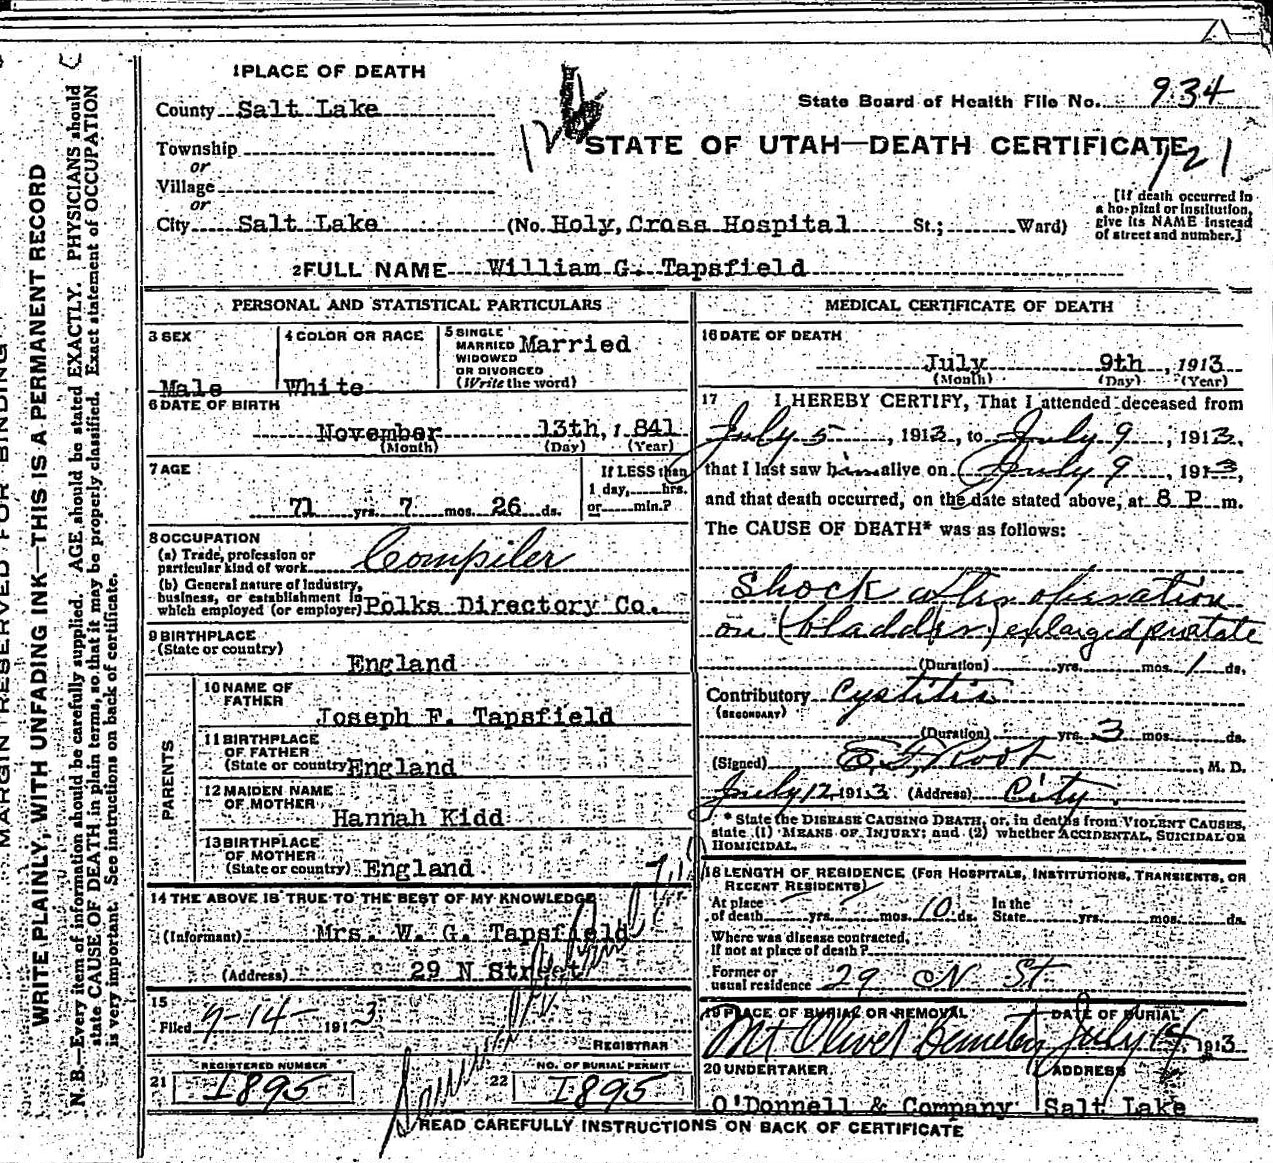 MARGIN RESERVED FOR BINDING
WRITE PLAINLY, WITH UNFADING INK—THIS IS A PERMANENT RECORD
N. B.—Every item of information should be carefully supplied. AGE should be stated EXACTLY. PHYSICIANS should
state CAUSE OF DEATH in plain terms, so that it may be properly classified. Exact statement of OCCUPATION
is very important. See instructions on back of certificate.
1 PLACE OF DEATH
County Salt Lake
Township
or
Village
or
City Salt Lake (No. Holy, Cross Hospital St.; Ward)
State Board of Health File No. 934
STATE OF UTAH—DEATH CERTIFICATE
121
[If death occurred in
a hospital or institution,
give its NAME instead
of street and number.]
2 FULL NAME William G. Tapsfield
PERSONAL AND STATISTICAL PARTICULARS
3 SEX
Male
4 COLOR OR RACE
White
5 SINGLE
MARRIED
WIDOWED
OR DIVORCED
(Write the word)
Married
6 DATE OF BIRTH
November 13th, 1841
(Month) (Day) (Year)
7 AGE
71 yrs. 7 mos. 26 ds.
If LESS than
1 day, hrs.
or min.?
8 OCCUPATION
(a) Trade, profession or
particular kind of work Compiler
(b) General nature of Industry,
business, or establishment in
which employed (or employer) Polks Directory Co.
9 BIRTHPLACE
(State or country)
England
PARENTS
10 NAME OF
FATHER
Joseph F. Tapsfield
11 BIRTHPLACE
OF FATHER
(State or country) England
12 MAIDEN NAME
OF MOTHER
Hannah Kidd
13 BIRTHPLACE
OF MOTHER
(State or country) England
14 THE ABOVE IS TRUE TO THE BEST OF MY KNOWLEDGE
(Informant) Mrs. W. G. Tapsfield
(Address) 29 N Street
15
Filed 7-14- 1913
REGISTRAR
REGISTERED NUMBER
21 1895
NO. OF BURIAL PERMIT
22 1895
MEDICAL CERTIFICATE OF DEATH
16 DATE OF DEATH
July 9th, 1913
(Month) (Day) (Year)
17 I HEREBY CERTIFY, That I attended deceased from
July 5, 1913, to July 9, 1913,
that I last saw him alive on July 9, 1913,
and that death occurred, on the date stated above, at 8 P m.
The CAUSE OF DEATH* was as follows:
Shock after operation
on (bladder) enlarged prostate
(Duration) yrs. mos. 1 ds.
Contributory Cystitis
(SECONDARY)
(Duration) yrs. 3 mos. ds.
(Signed) E. F. Root, M. D.
July 12, 1913 (Address) City.
* State the DISEASE CAUSING DEATH, or, in deaths from VIOLENT CAUSES,
state (1) MEANS OF INJURY; and (2) whether ACCIDENTAL, SUICIDAL OR
HOMICIDAL.
18 LENGTH OF RESIDENCE (FOR HOSPITALS, INSTITUTIONS, TRANSIENTS, OR
RECENT RESIDENTS)
At place
of death yrs. mos. 10 ds.
In the
State yrs. mos. ds.
Where was disease contracted,
if not at place of death?
Former or
usual residence 29 N St
19 PLACE OF BURIAL OR REMOVAL
Mt Olivet Cemetery
DATE OF BURIAL
July 14 1913
20 UNDERTAKER
O'Donnell & Company
ADDRESS
Salt Lake
READ CAREFULLY INSTRUCTIONS ON BACK OF CERTIFICATE